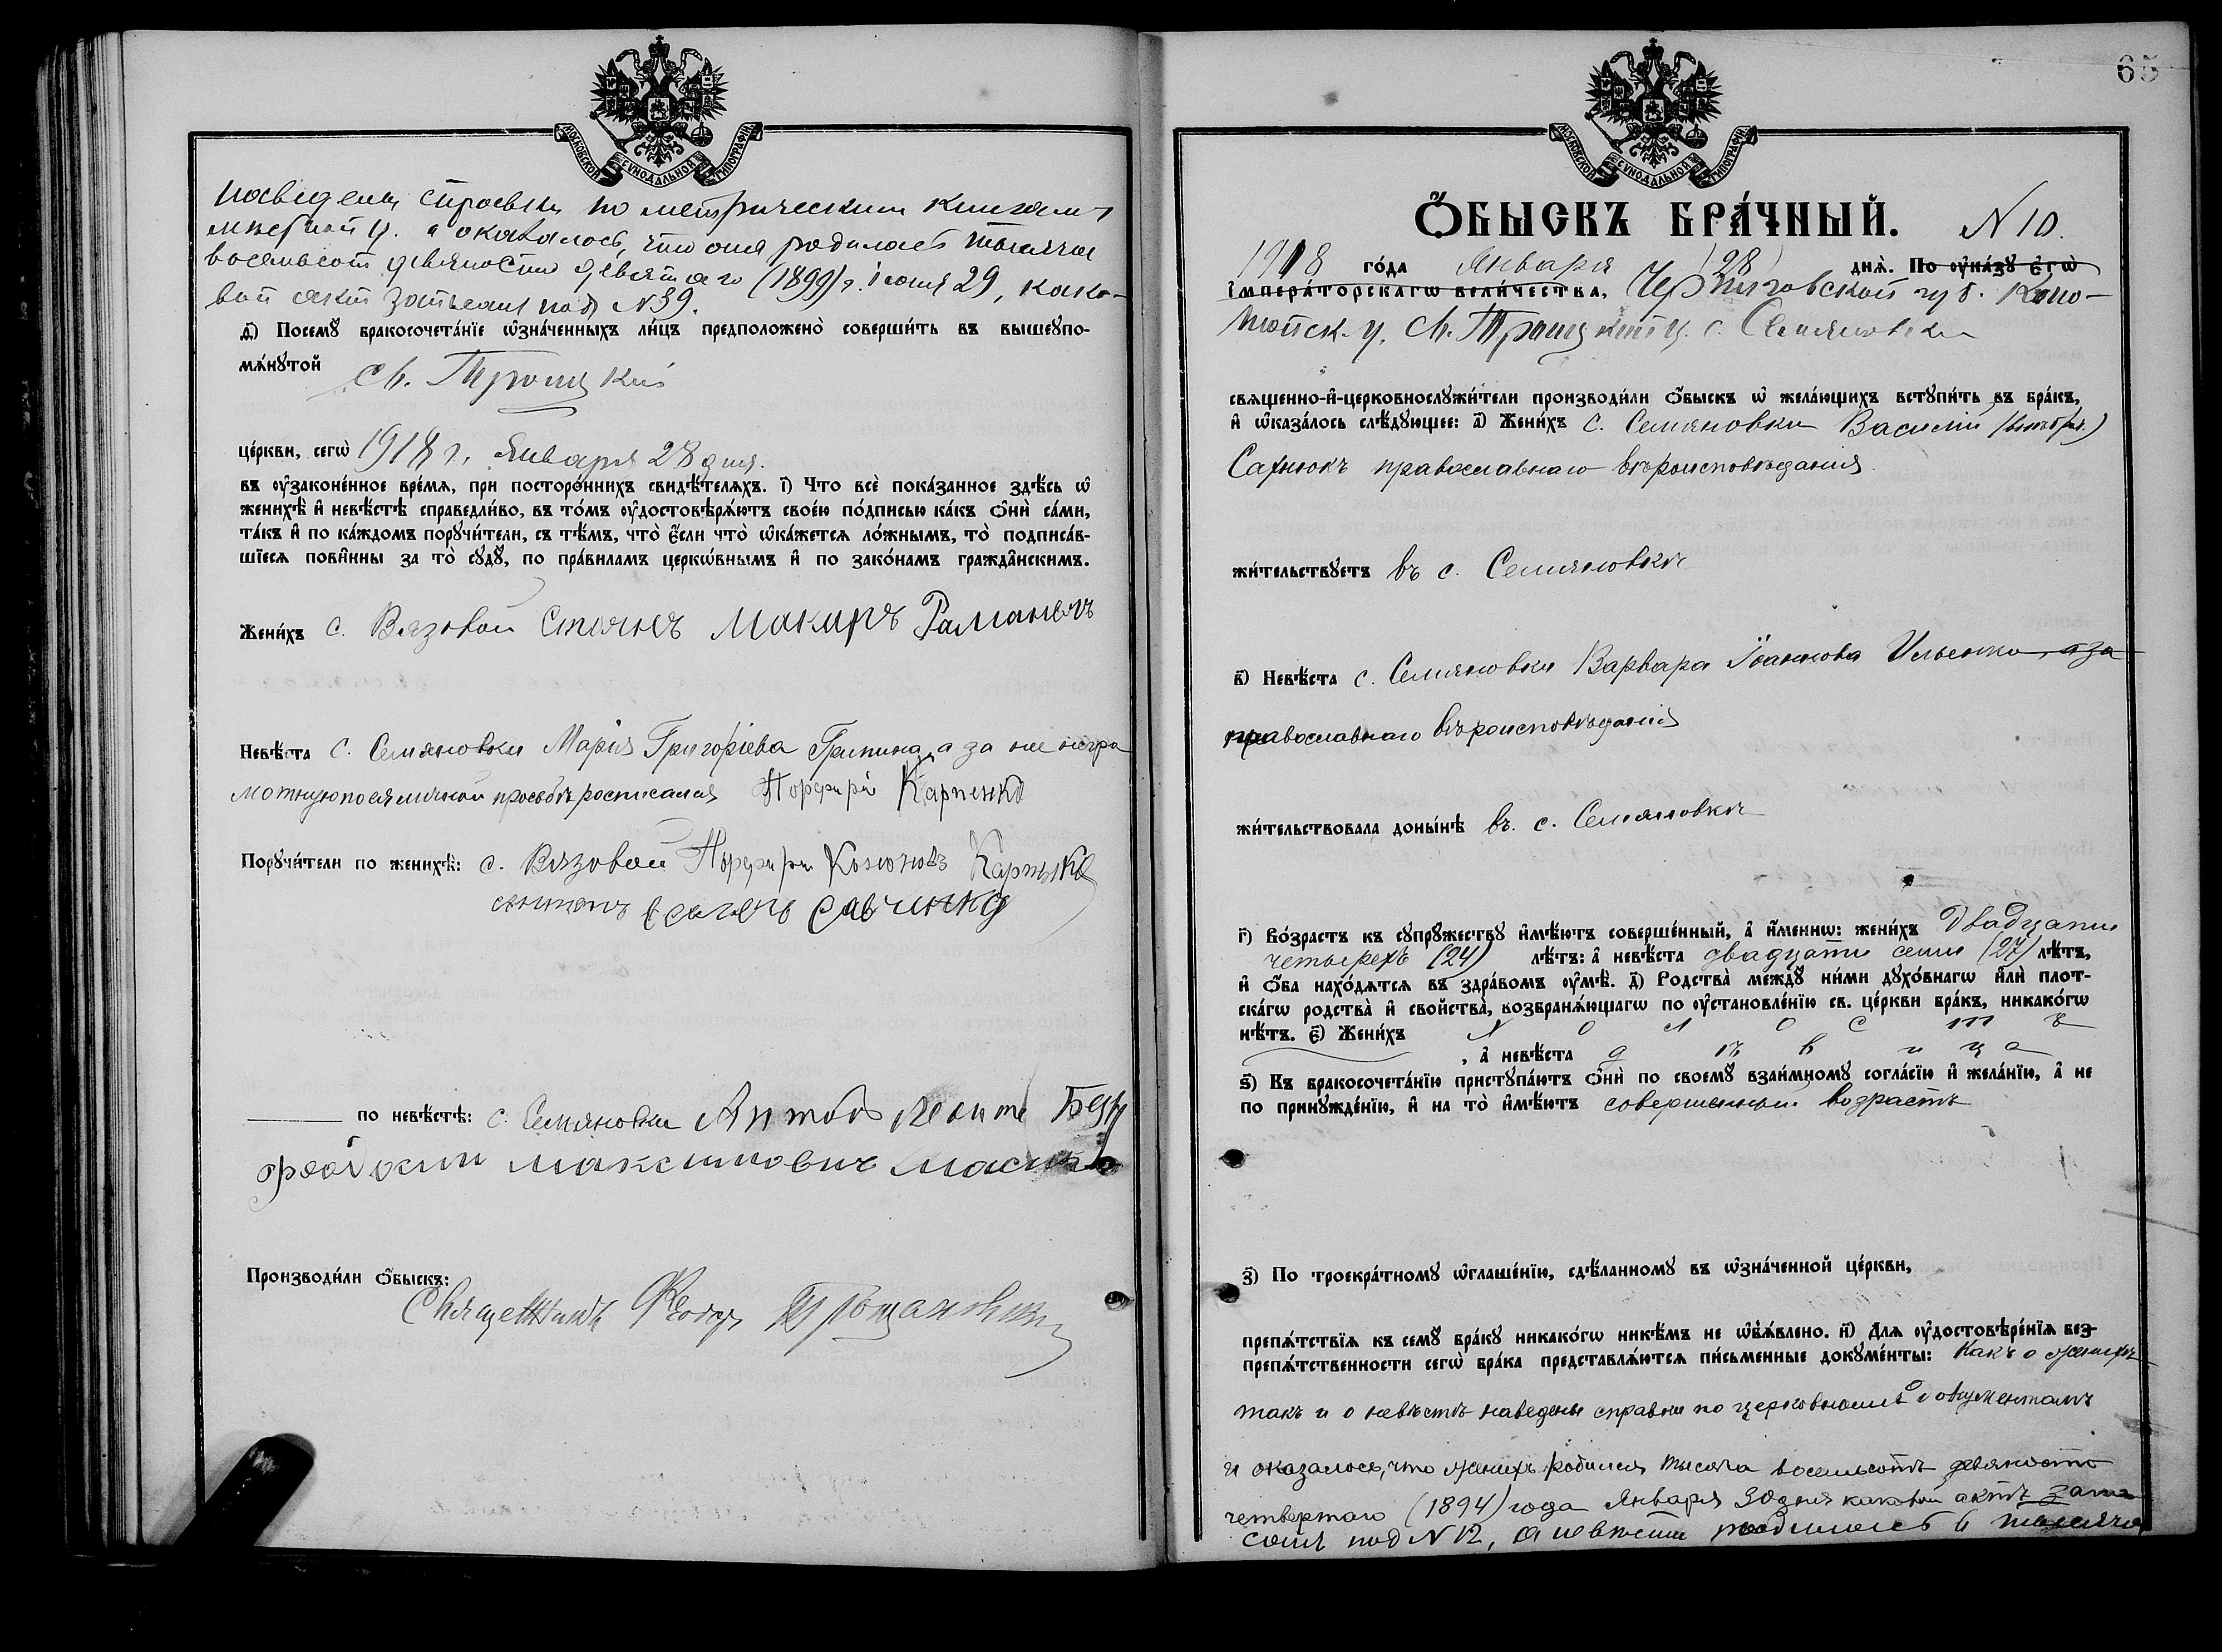 МОСКОВСКОЙ СѴНОДАЛЬНОЙ ТИПОГРАФІИ
справки по метрическим книгам
а оказалось, что она родилась тысяча
восемьсот девяносто девятаго (1899) г. іюня 29, како-
вой акт записан под N 39.
д҃) Посемꙋ бракосочета́нїе ѡ҆зна́ченныхъ ли́цъ предположено̀ соверши́ть въ вышеупо-
мѧ́нꙋтой Св. Троицкій
це́ркви, сегѡ̀ 1918 г. Января 28 дня.
въ ᲂу҆законе́нное вре́мѧ, при посторо́ннихъ свидѣ́телѧхъ. і҃) Что всѐ пока́занное здѣ́сь ѡ҆
женихѣ̀ и҆ невѣ́стѣ справедли́во, въ то́мъ ᲂу҆достовѣрѧ́ютъ свое́ю по́дписью ка́къ ѻ҆нѝ са́ми,
та́къ и҆ по ка́ждомъ порꙋчи́тели, съ тѣ́мъ, что̀ є҆́сли что̀ ѡ҆ка́жетсѧ ло́жнымъ, то̀ подписа́в-
шїесѧ пови́нны за то̀ сꙋдꙋ̀, по пра́виламъ церко́внымъ и҆ по зако́намъ гражда́нскимъ.
Жени́хъ с. Вязовой Стоянъ Макаръ Рамановъ
Невѣ́ста с. Семяновки Марія Григоріева Грипина, а за нее негра
мотную по ея личной просьбѣ росписался Порфирій Карпенко
Порꙋчи́тели по женихѣ̀: с. Вязовой Порфирій Карпенко
Савченко
по невѣ́стѣ: с. Семяновки
Максимович
Производи́ли ѻ҆́быскъ:
Священникъ Ѳеодоръ
65
МОСКОВСКОЙ СѴНОДАЛЬНОЙ ТИПОГРАФІИ
Ѻ҆́БЫСКЪ БРА́ЧНЫЙ. N 10.
1918 го́да Января 28 днѧ̀. По ᲂу҆ка́зꙋ є҆гѡ̀
і҆мпера́торскагѡ вели́чества, Черниговской губ. Коно-
топск. у. Св. Троицкой ц. с. Семяновки
свѧщенно-и҆-церковнослꙋжи́тели производи́ли ѻ҆́быскъ ѡ҆ жела́ющихъ встꙋпи́ть въ бра́къ,
и҆ ѡ҆каза́лось слѣ́дꙋющее: а҃) Жени́хъ с. Семяновки Василій
Сахнюкъ православнаго вѣроисповѣданія
жи́тельствꙋетъ въ с. Семяновкѣ
в҃) Невѣ́ста с. Семяновки Варвара Іоаннова Ильенко, а за
православнаго вѣроисповѣданія
жи́тельствовала доны́нѣ въ. с. Семяновкѣ
г҃) Во́зрастъ къ сꙋпрꙋ́жествꙋ и҆мѣ́ютъ соверше́нный, а҆ и҆́менно: жени́хъ Двадцати
четырехъ (24) лѣ́тъ: а҆ невѣ́ста двадцати семи (27) лѣ́тъ,
и҆ ѻ҆́ба нахо́дѧтсѧ въ здра́вомъ ᲂу҆мѣ̀. д҃) Родства̀ междꙋ̀ ни́ми дꙋхо́внагѡ и҆лѝ плот-
ска́гѡ родства̀ и҆ сво́йства̀, возбранѧ́ющагѡ по ᲂу҆становле́нїю св. це́ркви бра́къ, никако́гѡ
нѣ́тъ. є҃) Жени́хъ холостъ
, а҆ невѣ́ста дѣвица
ѕ҃) Къ бракосочета́нїю пристꙋпа́ютъ ѻ҆нѝ по своемꙋ̀ взаи́мномꙋ согла́сїю и҆ жела́нїю, а҆ не
по принꙋжде́нїю, и҆ на то̀ и҆мѣ́ютъ совершенный возрастъ
з҃) По троекра́тномꙋ ѡ҆глаше́нїю, сдѣ́ланномꙋ въ ѡ҆зна́ченной це́ркви,
препѧ́тствїѧ къ семꙋ̀ бра́кꙋ никако́гѡ никѣ́мъ не ѡ҆б̾ѧ́влено. и҃) Длѧ ᲂу҆достовѣре́нїѧ без-
препѧ́тственности сегѡ̀ бра́ка представлѧ́ютсѧ пи́сьменные докꙋме́нты: Какъ о женихѣ
такъ и о невѣстѣ наведены справки по церковнымъ документамъ
и оказалось, что женихъ родился тысяча восемьсотъ девяносто
четвертаго (1894) года Января 30 дня каковой актъ запи
санъ под N 12, а невѣста родилась в тысяча